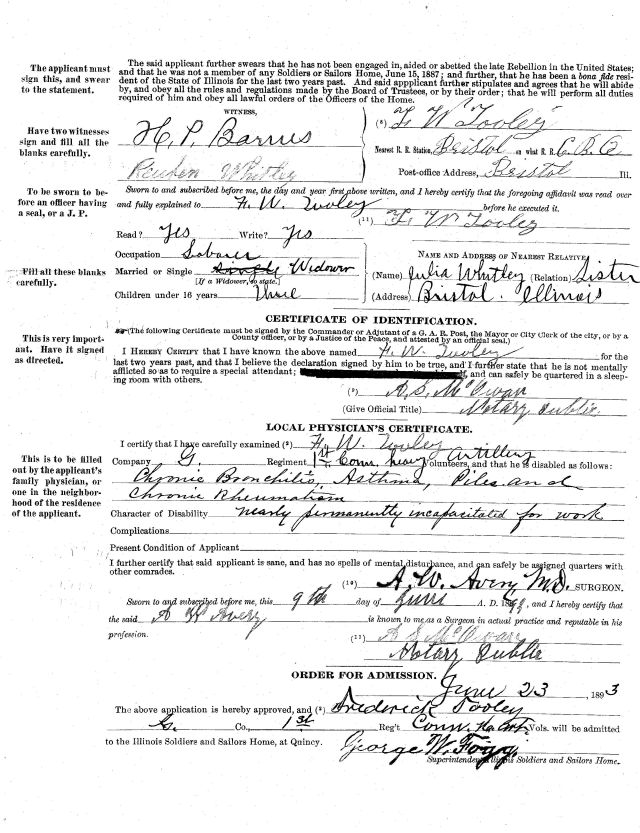 The applicant must sign this, and swear to the statement.
The said applicant further swears that he has not been engaged in, aided or abetted the late Rebellion in the United States;
and that he was not a member of any Soldiers or Sailors Home, June 15, 1887; and further, that he has been a bona fide resi-
dent of the State of Illinois for the last two years past. And said appplicant further stipulates and agrees that he will abide
by, and obey all the rules and regulations made by the Board of Trustees, or by their order; that he will perform all duties
required of him and obey all lawful orders of the Officers of the Home.
Have two witnesses sign and fill all the blanks carefully.
WITNESS,
H. P. Barnes
Reuben Whitley
(8) F. W. Tooley
Nearest R. R. Station, Bristol on what R. R. C. B. Q
Post-office Address, Bristol Ill.
To be sworn to be-
fore an officer having
a seal, or a J. P.
Sworn to and subscribed before me, the day and year first above written, and I hereby certify that the foregoing affidavit was read over
and fully explained to F. W. Tooley before he executed it.
(11) F. W Tooley
Read? Yes Write? Yes
Occupation Laborer
Fill all these blanks
carefully.
Married or Single Single Widower
(If a Widower, so state.)
Children under 16 years Three
NAME AND ADDRESS OF NEAREST RELATIVE
(Name) Julia Whitley (Relation) Sister
(Address) Bristol. Illinois
CERTIFICATE OF IDENTIFICATION.
(The following Certificate must be signed by the Commander or Adjutant of a G. A. R. Post, the Mayor or City Clerk of the city, or by a
County officer, or by a Justice of the Peace, and attested by an official seal.)
This is very import-
ant. Have it signed
as directed.
I HEREBY CERTIFY that I have known the above named F. W. Tooley for the
last two years past, and that I believe the declaration signed by him to be true, and I further state that he is not mentally
afflicted so as to require a special attendant; and can safely be quartered in a sleep-
ing room with others.
(9) A. S. McEwan
(Give Official Title) Notary Public.
LOCAL PHYSICIAN'S CERTIFICATE.
This is to be filled
out by the applicant's
family physician, or
one in the neighbor-
hood of the residence
of the applicant.
I certify that I have carefully examined (2) F. W. Tooley
Company G. Regiment 1st Conn heavy Artillery Volunteers, and that he is disabled as follows:
Chronic Bronchitis, Asthma, Piles and
Chronic Rheumatism
Character of Disability nearly permanently incapacitated for work
Complications
Present Condition of Applicant
I further certify that said applicant is sane, and has no spells of mental disturbance, and can safely be assigned quarters with
other comrades.
(10) A. W. Avery M.D. SURGEON.
Sworn to and subscribed before me, this 9th day of June A. D. 189, and I hereby certify that
the said A W Avery is known to me as a Surgeon in actual practice and reputable in his
profession.
(11) A S McEwan
Notary Public
ORDER FOR ADMISSION.
June 23, 1893
The above application is hereby approved, and (2) Frederick Tooley
G. Co., 1st Reg't Conn. Hv. Art. Vols. will be admitted
to the Illinois Soldiers and Sailors Home, at Quincy.
George W. Fogg.
Superintendent Illinois Soldiers and Sailors Home.